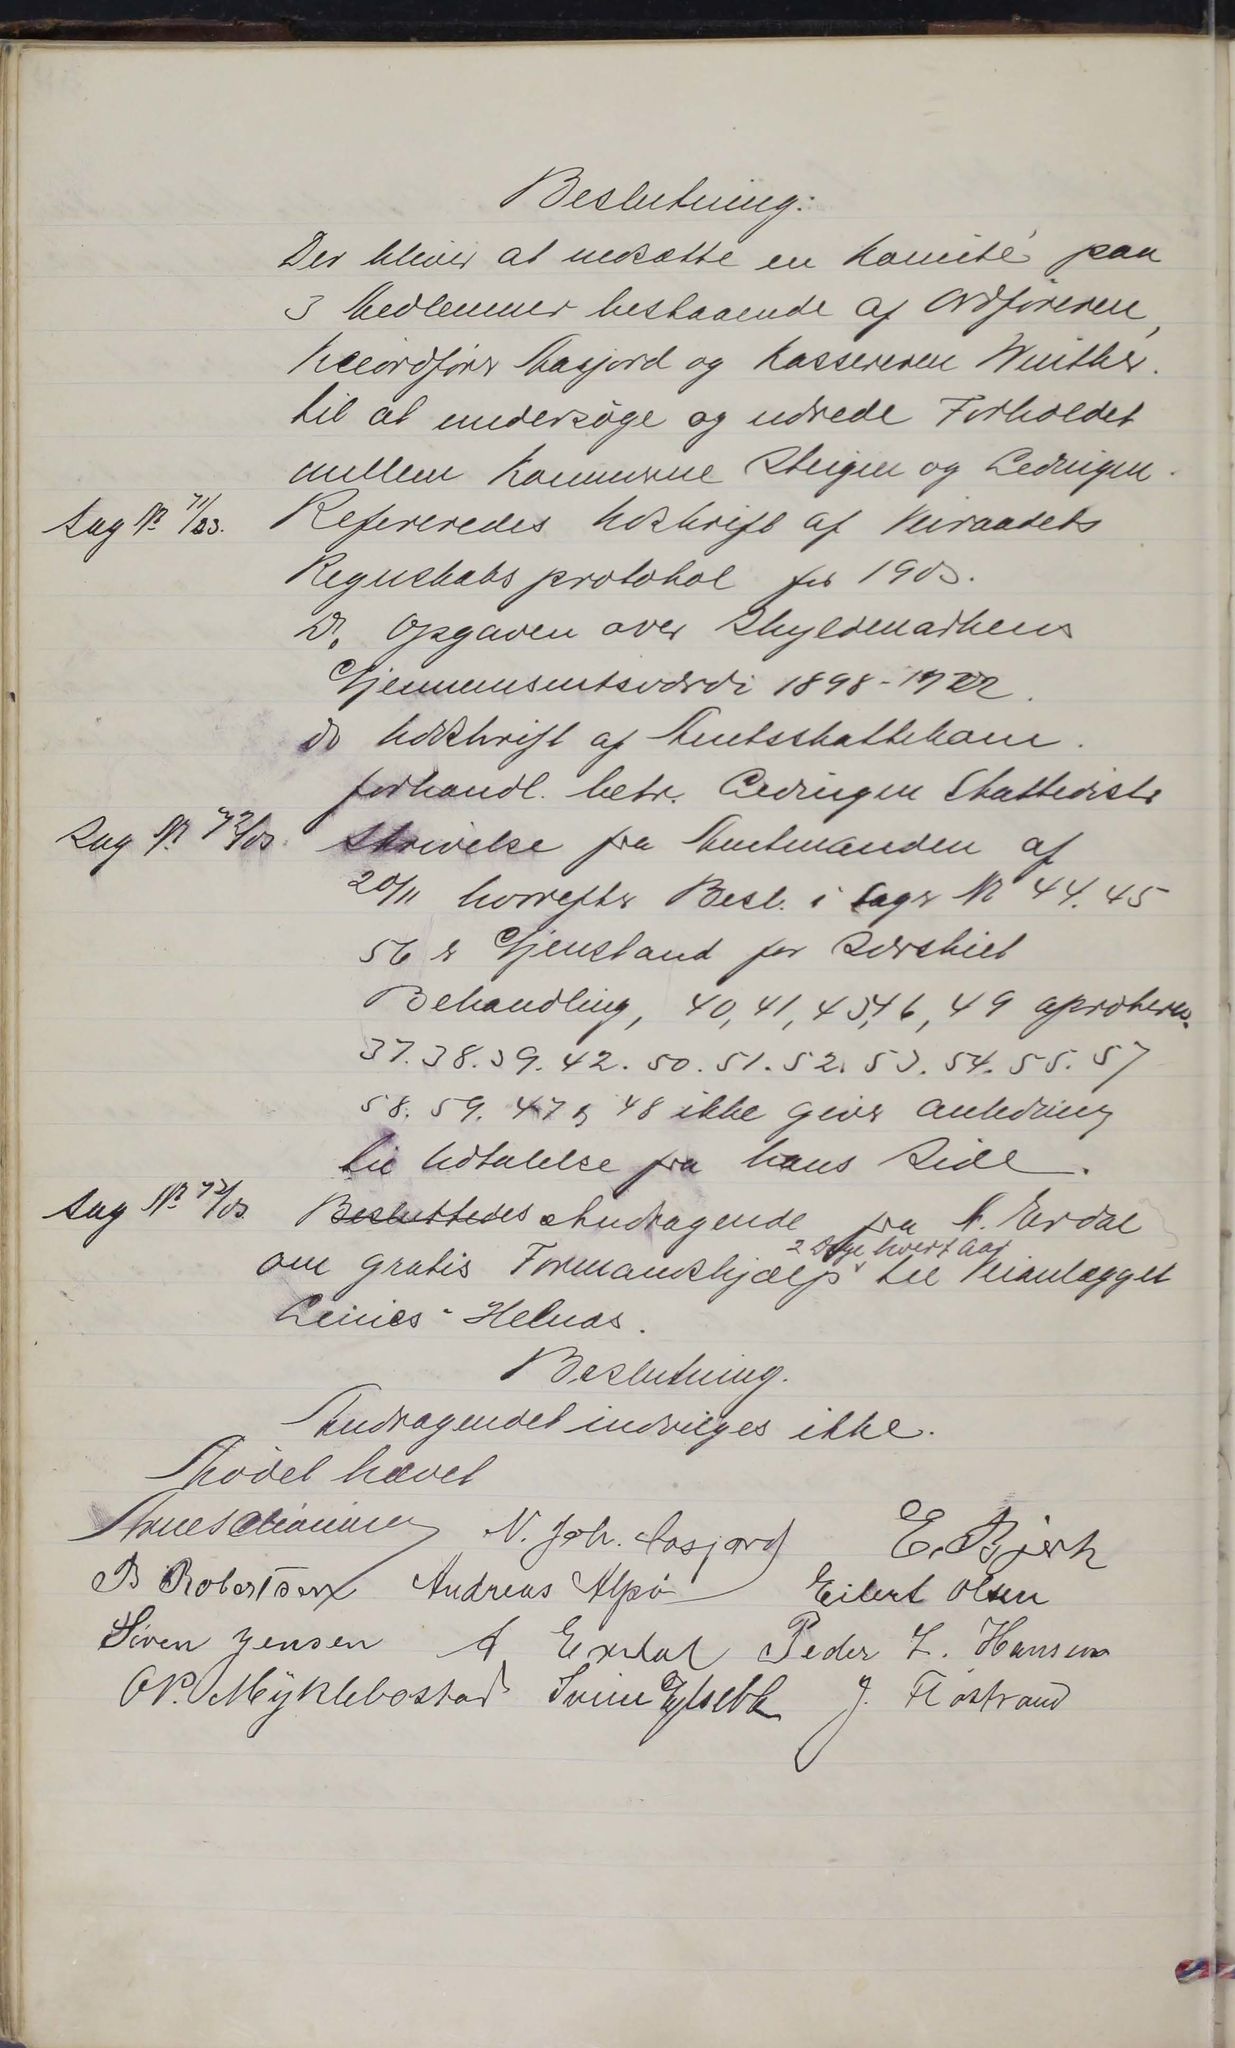 Beslutning:
Der bliver at nedsætte en Komité paa
3 Medlemmer bestaaende af Ordføreren,
Viceordfører Aasjord og Kassereren Winther.
til at undersøge og udrede Forholdet
mellem Kommunerne Steigen og Ledingen.
Sag № 71/03. Refereredes Udskrift af Veiraadets
Regnskabsprotokol for 1903.
Do Opgaven over Skyldmarkens
Gjennemsnitsværdi 1898-1902.
Do Udskrift af Amtsskattekom.
forhandl. betr. Ledingen Skattedistr
Sag № 72/03. Skrivelse fra Amtmanden af
20/11 hvorefter Besl. i Sager № 44. 45
56 er Gjenstand for Særskilt
Behandling, 40, 41, 43, 46, 49 aproberes.
37. 38. 39. 42. 50. 51. 52. 53. 54. 55. 57
58. 59. 47 & 48 ikke giver Anledning
til Udtalelse fra hans Side.
Sag № 73/03. Besluttedes Andragende fra A. Erdal
2 Dage hvert Aar
om gratis Formandshjælp til Veianlægget
Leines - Helnes.
Beslutning.
Andragendet indvilges ikke.
Mødet hævet
N. Joh. Aasjord E. Bjerk
B Robertsen Andreas Alpø Eilert Olsen
Søren Jensen A Erdal Peder L. Hansen
O.P. Myklebostad J. Fløstrand